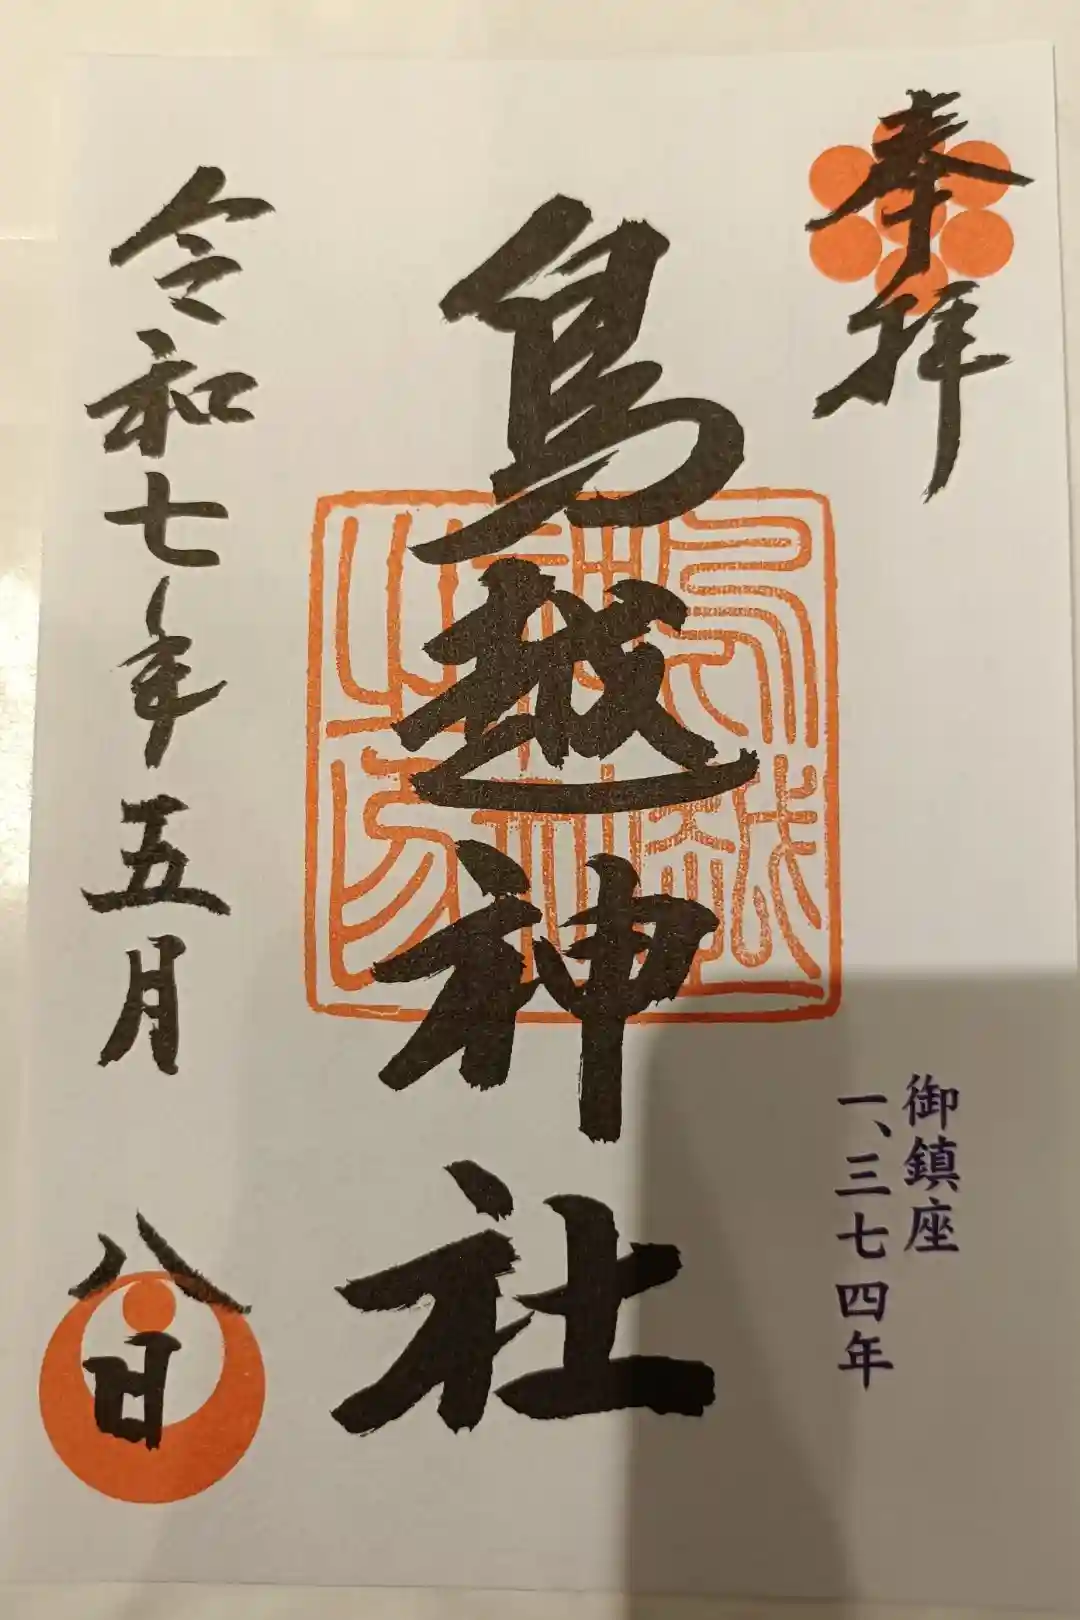 奉拝
御鎮座
一、三七四年
鳥越神社
令和七年五月八日